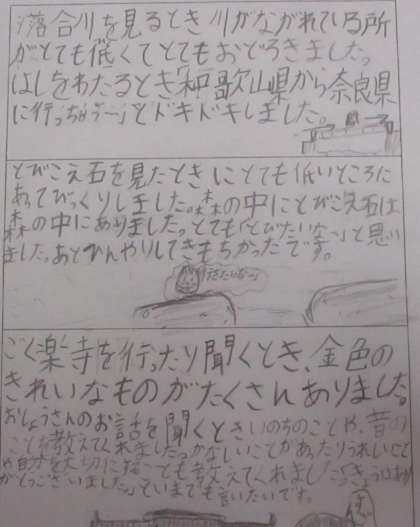 落合川を見るとき川がながれている所
がとても低くてとてもおどろきました。
はしをわたるとき「和歌山県から奈良県
に行っちゃう〜」とドキドキしました。
とびこえ石を見たときにとても低いところに
あってびっくりしました。森の中にとびこえ石は
森の中にありました。とても「とびたいな〜」と思い
ました。あとひんやりしてきもちかったです。
とびたいな〜
ごく楽寺を行ったり聞くとき、金色の
きれいなものがたくさんありました。
おしょうさんのお話を聞くといのちのことや、昔の
ことを教えてくれました。かなしいことがあったりうれしいこと
や自分を大切に
ことも教えてくれました。「きょうはあり
がとうございました。」といまでも言いたいです。